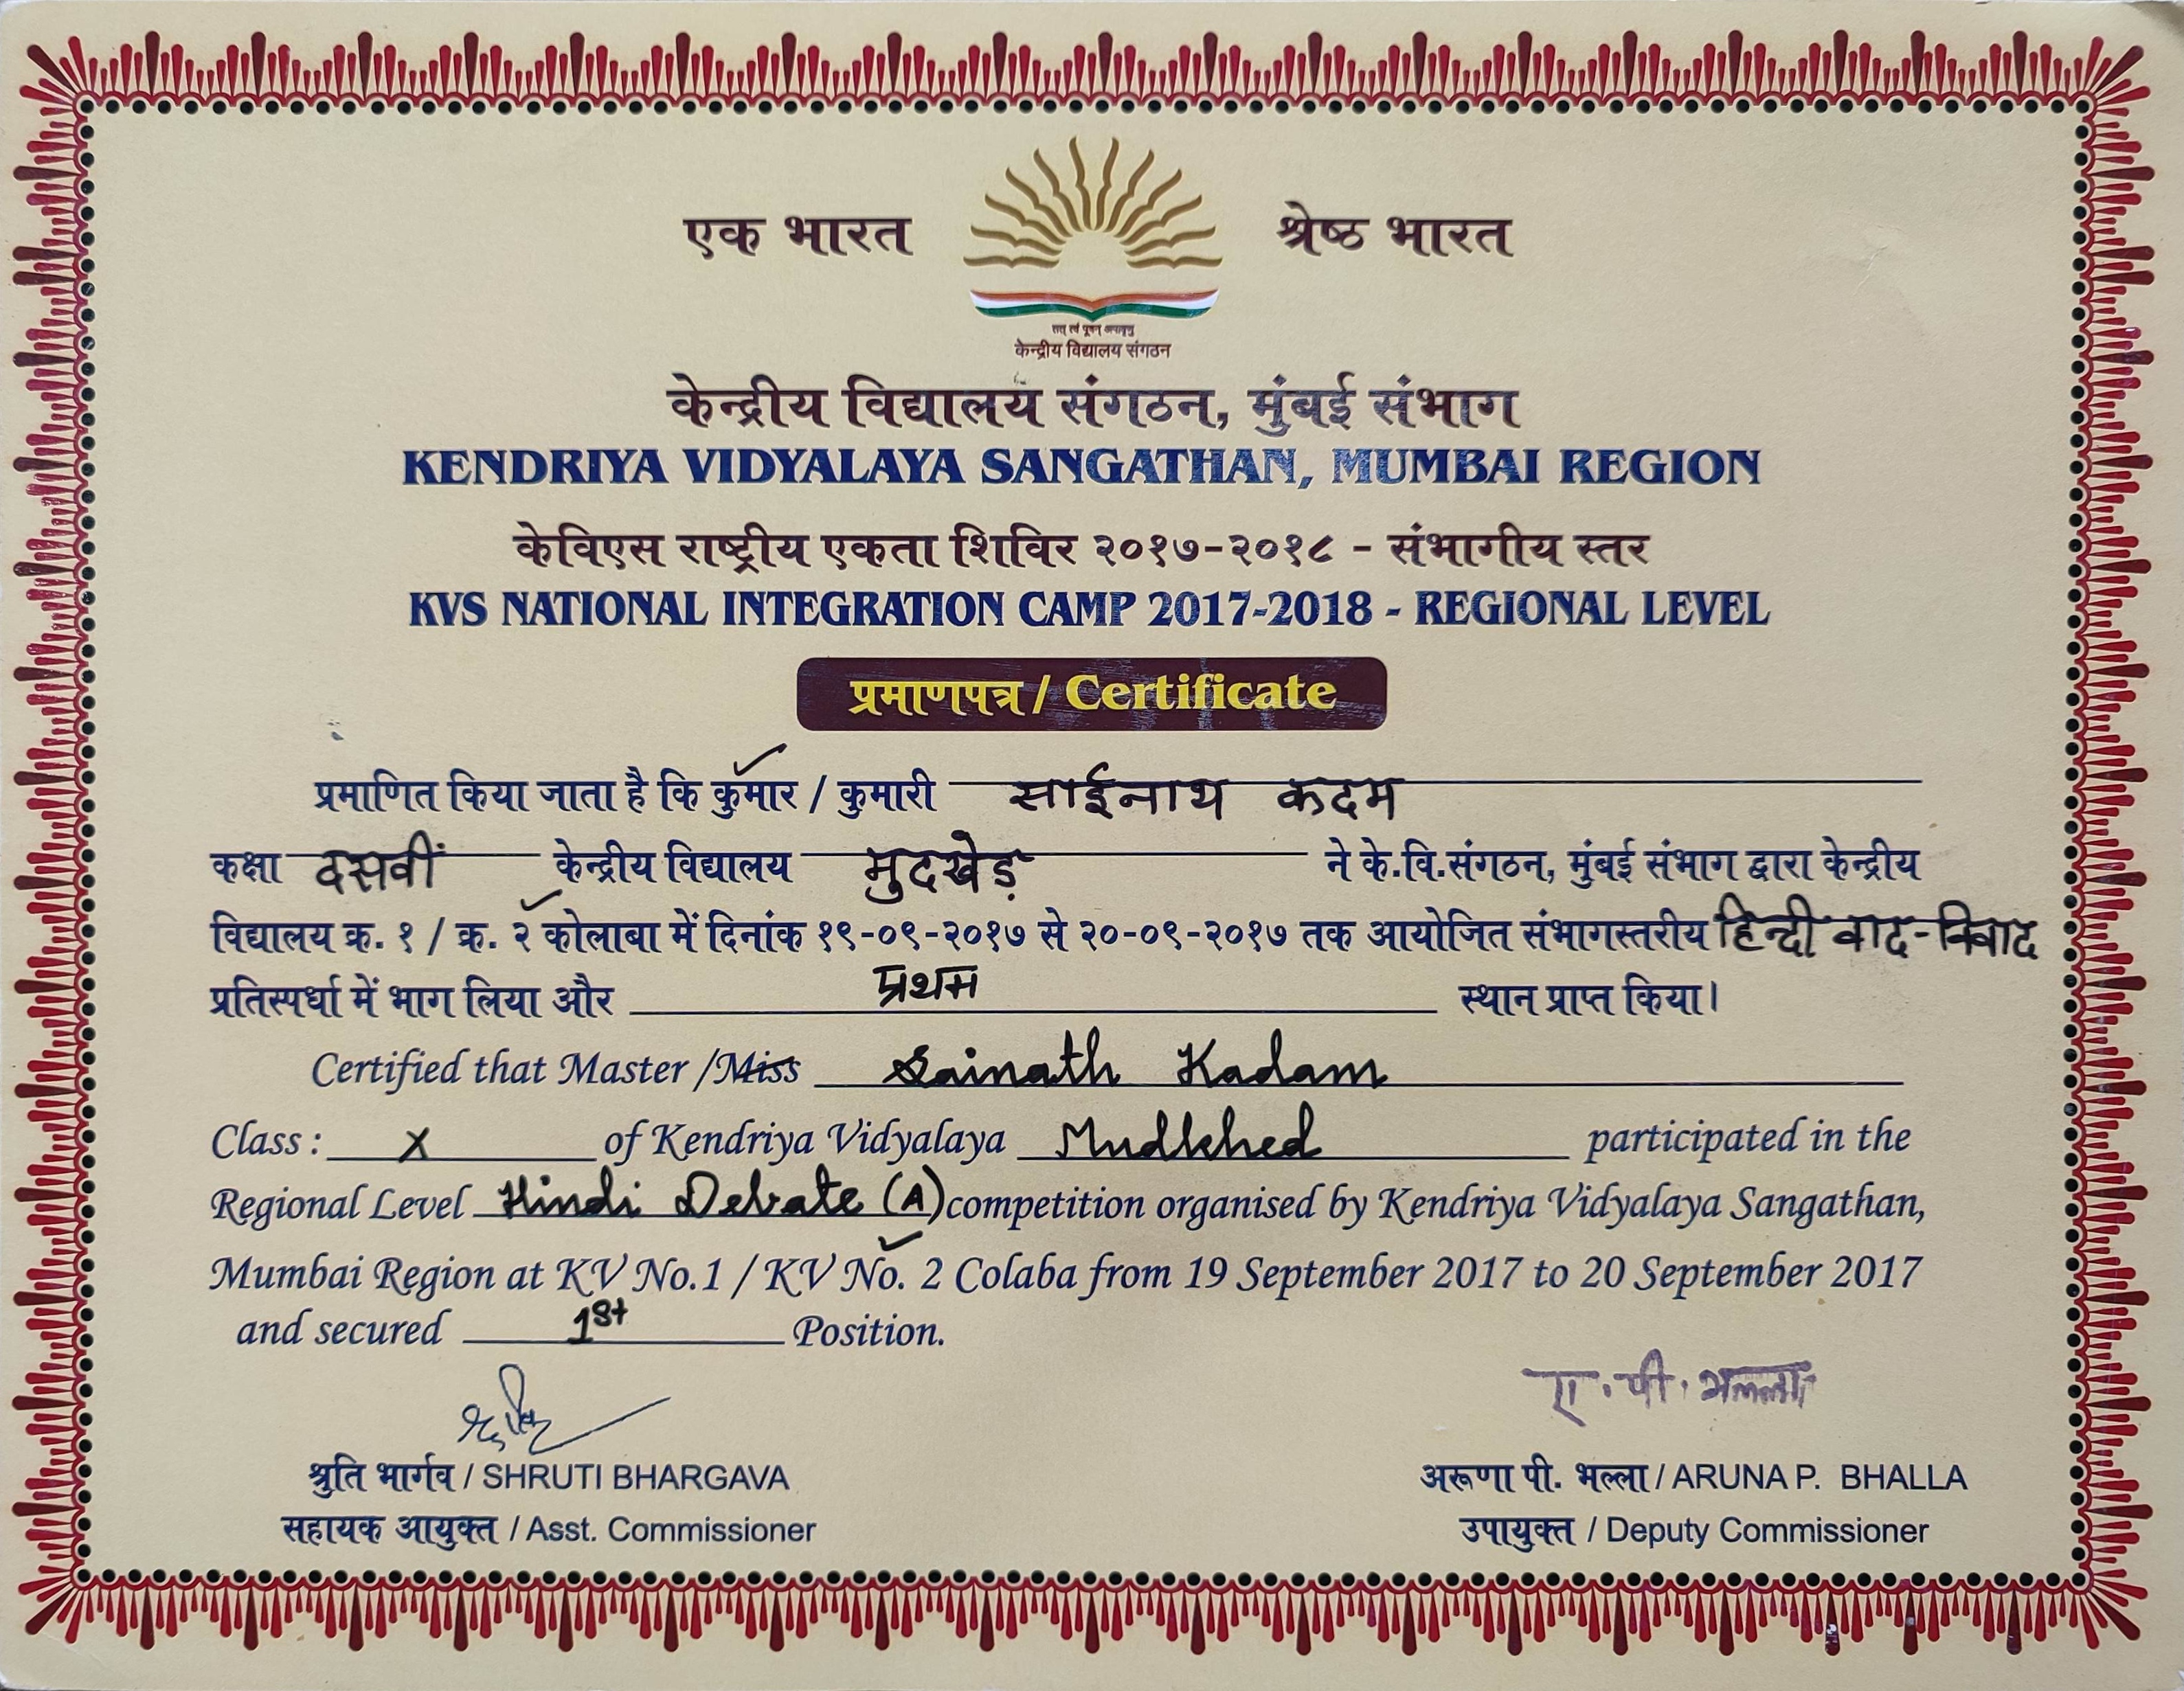 एक भारत श्रेष्ठ भारत
तत् त्वं पूषन् अपावृणु
केन्द्रीय विद्यालय संगठन
केन्द्रीय विद्यालय संगठन, मुंबई संभाग
KENDRIYA VIDYALAYA SANGATHAN, MUMBAI REGION
केविएस राष्ट्रीय एकता शिविर २०१७-२०१८ - संभागीय स्तर
KVS NATIONAL INTEGRATION CAMP 2017-2018 - REGIONAL LEVEL
प्रमाणपत्र / Certificate
प्रमाणित किया जाता है कि कुमार / कुमारी साईनाथ कदम
कक्षा दसवीं केन्द्रीय विद्यालय मुदखेड़ ने के.वि.संगठन, मुंबई संभाग द्वारा केन्द्रीय
विद्यालय क्र. १ / क्र. २ कोलाबा में दिनांक १९-०९-२०१७ से २०-०९-२०१७ तक आयोजित संभागस्तरीय हिन्दी वाद-विवाद
प्रतिस्पर्धा में भाग लिया और प्रथम स्थान प्राप्त किया।
Certified that Master /Miss Sainath Kadam
Class : X of Kendriya Vidyalaya Mudkhed participated in the
Regional Level Hindi Debate (A) competition organised by Kendriya Vidyalaya Sangathan,
Mumbai Region at KV No.1 / KV No. 2 Colaba from 19 September 2017 to 20 September 2017
and secured 1st Position.
ए. पी. भल्ला
श्रुति भार्गव / SHRUTI BHARGAVA अरूणा पी. भल्ला / ARUNA P. BHALLA
सहायक आयुक्त / Asst. Commissioner उपायुक्त / Deputy Commissioner